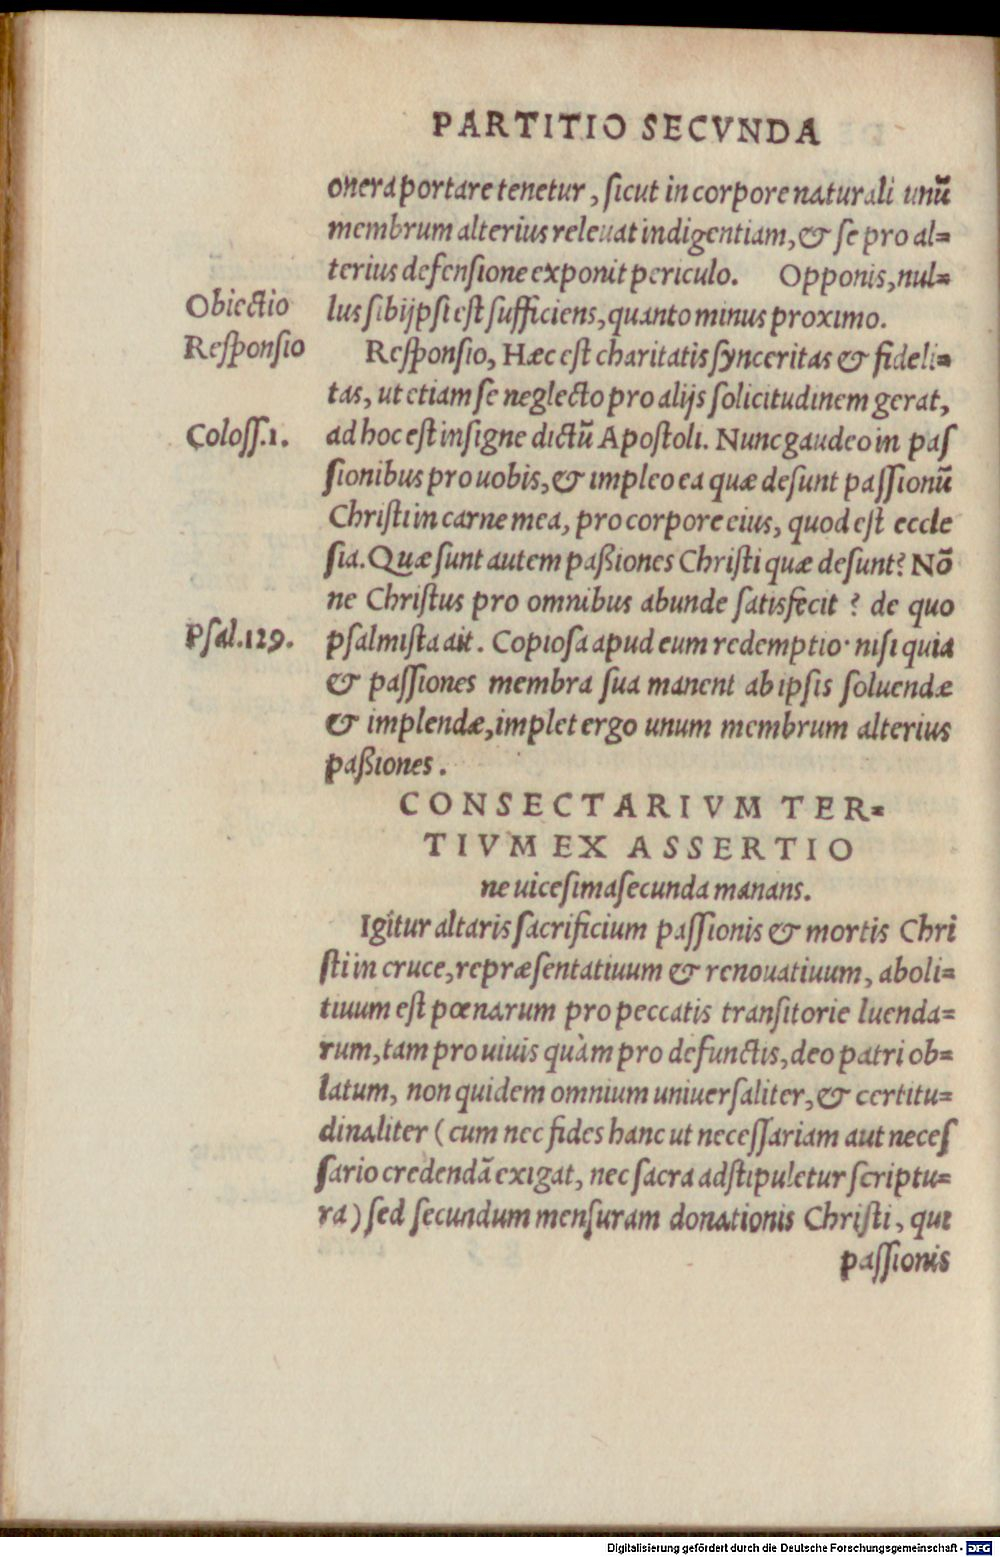 PARTITIO SECVNDA
onera portare tenetur, ſicut in corpore naturali unū
membrum alterius releuat indigentiam, & ſe pro al=
terius defenſione exponit periculo. Opponis, nul=
Obiectio
lus ſibijpſi eſt ſufficiens, quanto minus proximo.
Reſponſio
Reſponſio, Hæc eſt charitatis ſynceritas & fideli=
tas, ut etiam ſe neglecto pro alijs ſolicitudinem gerat,
Coloſſ.1.
ad hoc eſt inſigne dictū Apoſtoli. Nunc gaudeo in paſ
ſionibus pro uobis, & impleo ea quæ deſunt paſſionū
Chriſti in carne mea, pro corpore eius, quod eſt eccle
ſia. Quæ ſunt autem paßiones Chriſti quæ deſunt? Nō
ne Chriſtus pro omnibus abunde ſatisfecit? de quo
Pſal.129.
pſalmiſta ait. Copioſa apud eum redemptio· niſi quia
& paſſiones membra ſua manent ab ipſis ſoluendæ
& implendæ, implet ergo unum membrum alterius
paßiones.
CONSECTARIVM TER=
TIVM EX ASSERTIO
ne uiceſimaſecunda manans.
Igitur altaris ſacrificium paſſionis & mortis Chri
ſti in cruce, repræſentatiuum & renouatiuum, aboli=
tiuum eſt pœnarum pro peccatis tranſitorie luenda=
rum, tam pro uiuis quàm pro defunctis, deo patri ob=
latum, non quidem omnium uniuerſaliter, & certitu=
dinaliter (cum nec fides hanc ut neceſſariam aut neceſ
ſario credendā exigat, nec ſacra adſtipuletur ſcriptu=
ra) ſed ſecundum menſuram donationis Chriſti, qui
paſſionis
Digitalisierung gefördert durch die Deutsche Forschungsgemeinschaft - DFG